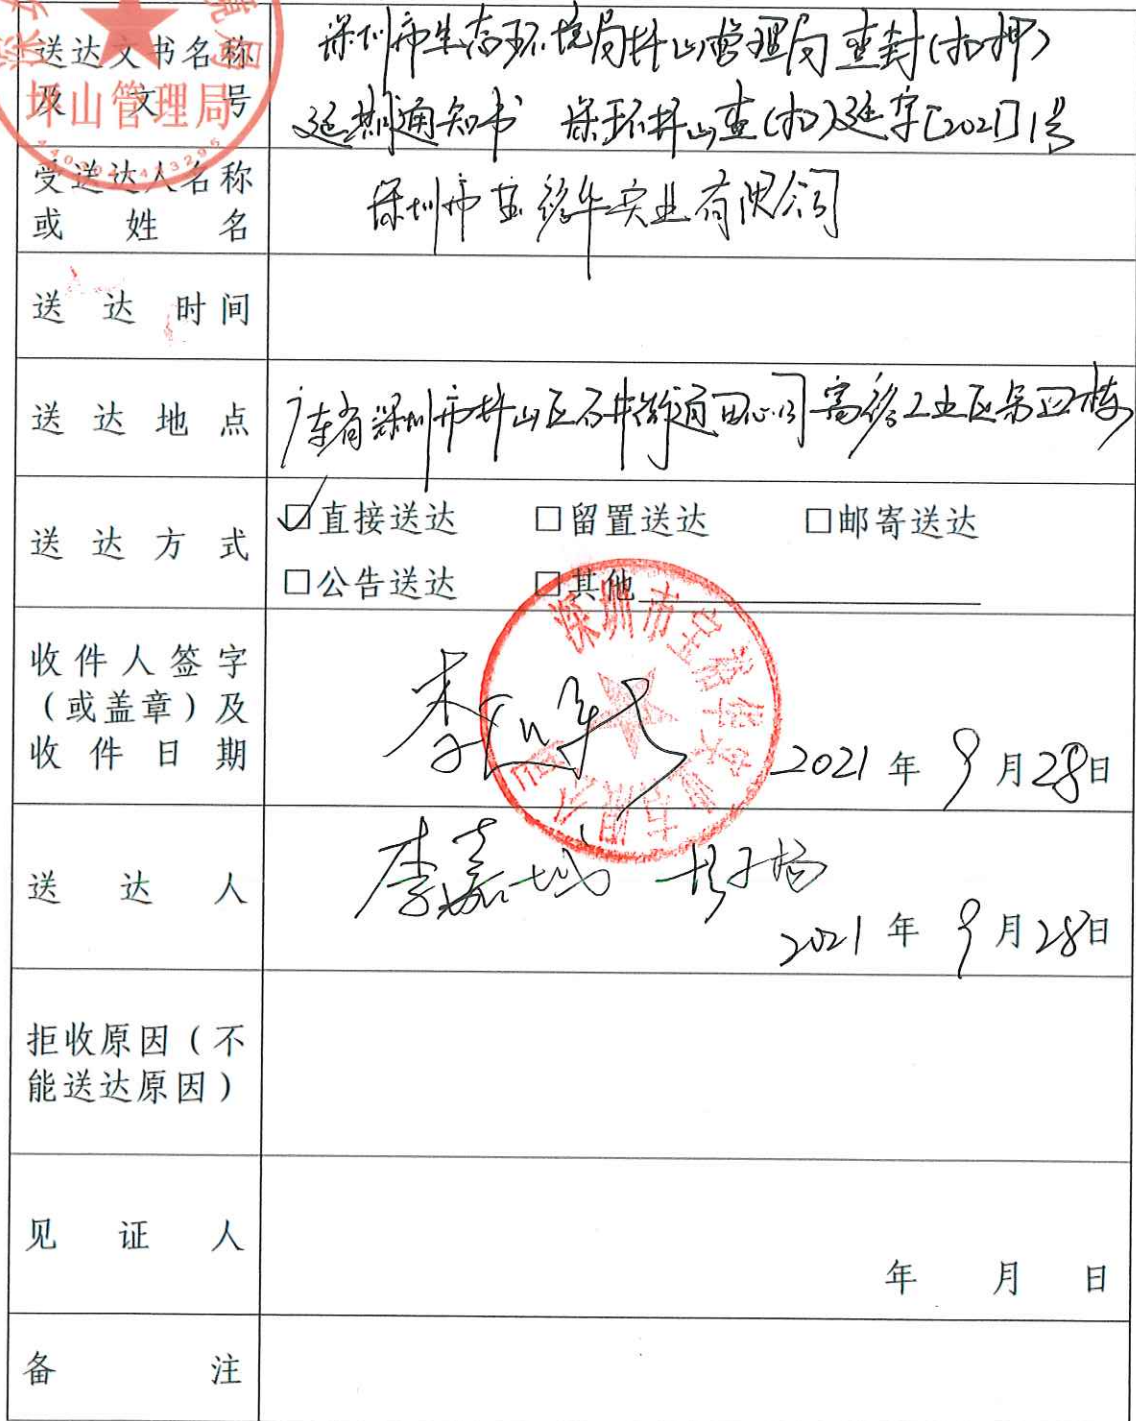 送达文书名称及文号
坪山管理局
深圳市生态环境局坪山管理局查封(扣押)
延期通知书 深环坪山查(扣)延字[2021]1号
受送达人名称
或姓名
深圳市宝裕华实业有限公司
送达时间
送达地点
广东省深圳市坪山区石井街道田心 富裕工业区第四栋
送达方式
☑直接送达 □留置送达 □邮寄送达
□公告送达 □其他
深圳市宝裕华实业有限公司
收件人签字
(或盖章)及
收件日期
李
2021年9月28日
送达人
李嘉城
2021年9月28日
拒收原因(不
能送达原因)
见证人
年 月 日
备注